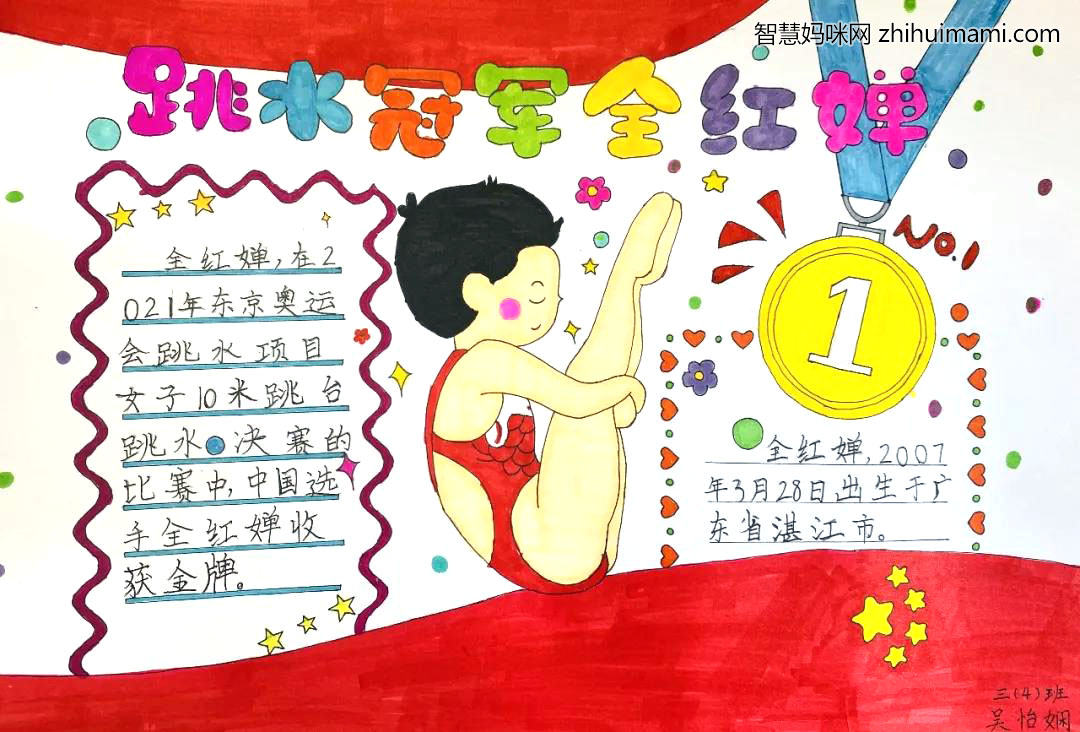 智慧妈咪网 zhihuimami.com
跳水冠军全红婵
全红婵,在2
021年东京奥运
会跳水项目
女子10米跳台
跳水决赛的
比赛中,中国选
手全红婵收
获金牌。
NO.1
1
全红婵,2007
年3月28日出生于广
东省湛江市。
三(4)班
吴怡娴